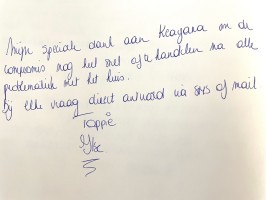 Mijn speciale dank aan Kcayara om de
compromis nog het snel af te handelen na alle
problematiek met het huis.
Bij elke vraag direct antwoord via sms of mail
Toppie